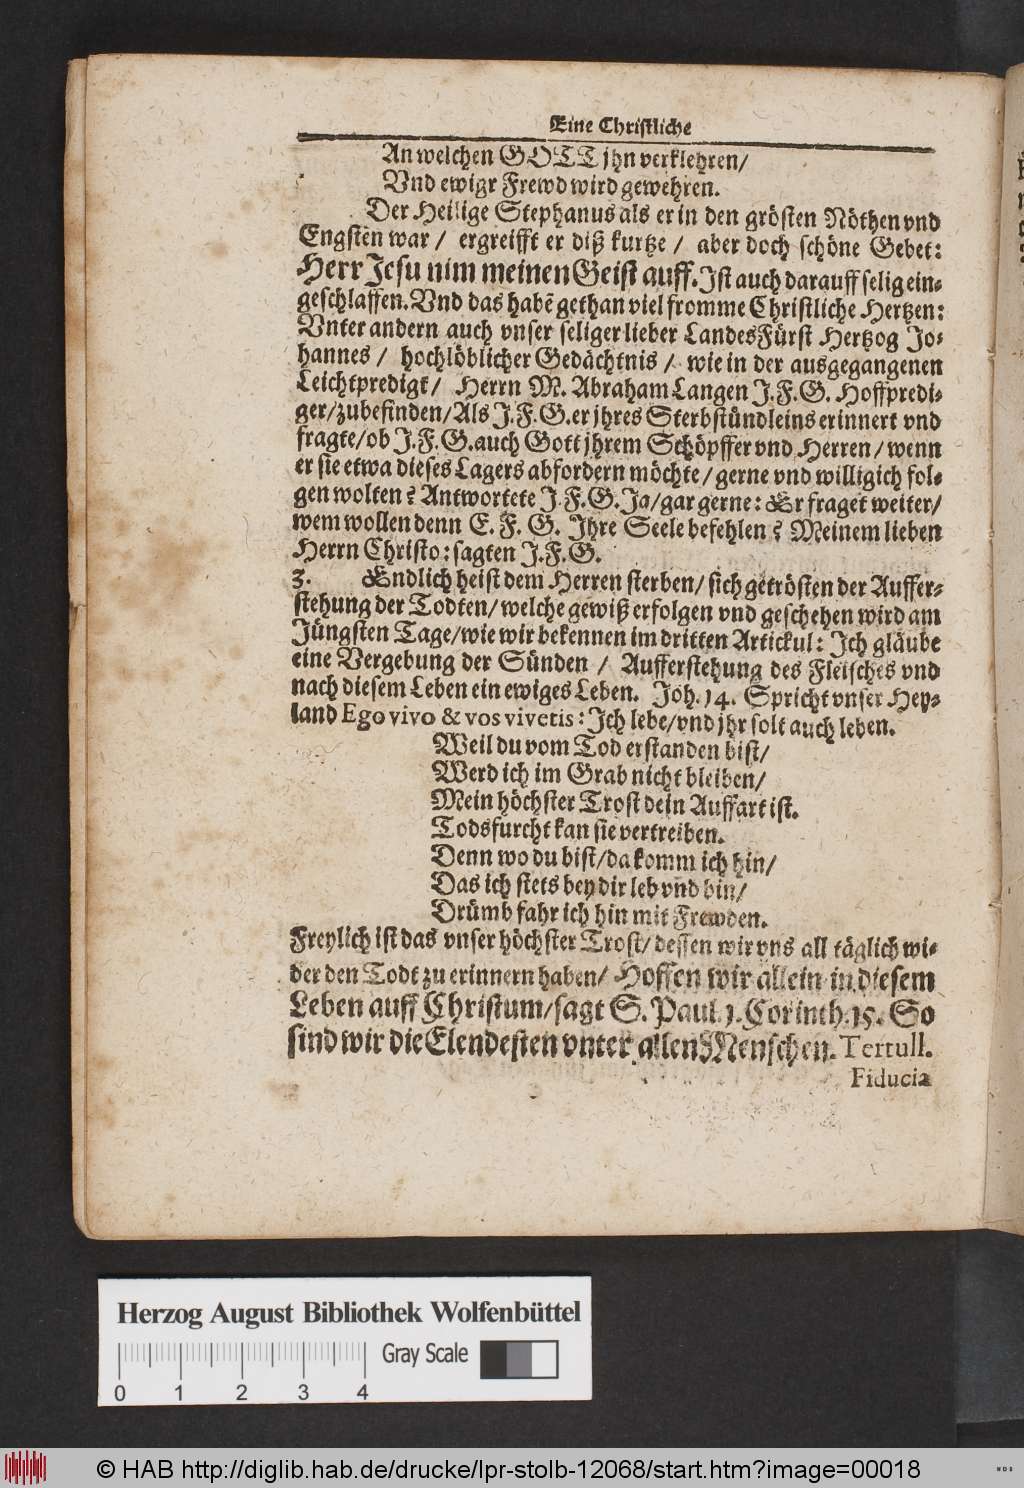 Eine Christliche
An welchen GOTT jhn verklehren/
Vnd ewigr Frewd wird gewehren.
Der Heilige Stephanus als er in den grösten Nöthen vnd
Engsten war / ergreifft er diß kurtze / aber doch schöne Gebet:
Herr Jesu nim meinen Geist auff. Jst auch darauff selig ein-
geschlaffen. Vnd das habẽ gethan viel fromme Christliche Hertzen:
Vnter andern auch vnser seliger lieber LandesFürst Hertzog Jo-
hannes / hochlöblicher Gedächtnis / wie in der ausgegangenen
Leichtpredigt / Herrn M. Abraham Langen J.F.G. Hoffpredi-
ger/zubefinden/Als J.F.G. er jhres Sterbstündleins erinnert vnd
fragte/ob J.F.G. auch Gott jhrem Schöpffer vnd Herren/wenn
er sie etwa dieses Lagers abfordern möchte/gerne vnd willigich fol-
gen wolten? Antwortete J.F.G. Ja/gar gerne: Er fraget weiter/
wem wollen denn E. F. G. Jhre Seele befehlen? Meinem lieben
Herrn Christo: sagten J.F.G.
3. Endlich heist dem Herren sterben/sich getrösten der Auffer-
stehung der Todten/welche gewiß erfolgen vnd geschehen wird am
Jüngsten Tage/wie wir bekennen im dritten Artickul: Jch gläube
eine Vergebung der Sünden / Aufferstehung des Fleisches vnd
nach diesem Leben ein ewiges Leben. Joh. 14. Spricht vnser Hey-
land Ego vivo & vos vivetis: Jch lebe/vnd jhr solt auch leben.
Weil du vom Tod erstanden bist/
Werd ich im Grab nicht bleiben/
Mein höchster Trost dein Auffart ist.
Todsfurcht kan sie vertreiben.
Denn wo du bist/da komm ich hin/
Das ich stets bey dir leb vnd bin/
Drümb fahr ich hin mit Frewden.
Freylich ist das vnser höchster Trost/dessen wir vns all täglich wi-
der den Todt zu erinnern haben/ Hoffen wir allein in diesem
Leben auff Christum/sagt S. Paul. 1. Corinth. 15. So
sind wir die Elendesten vnter allen Menschen. Tertull.
Fiducia
Herzog August Bibliothek Wolfenbüttel
Gray Scale
0 1 2 3 4
© HAB http://diglib.hab.de/drucke/lpr-stolb-12068/start.htm?image=00018